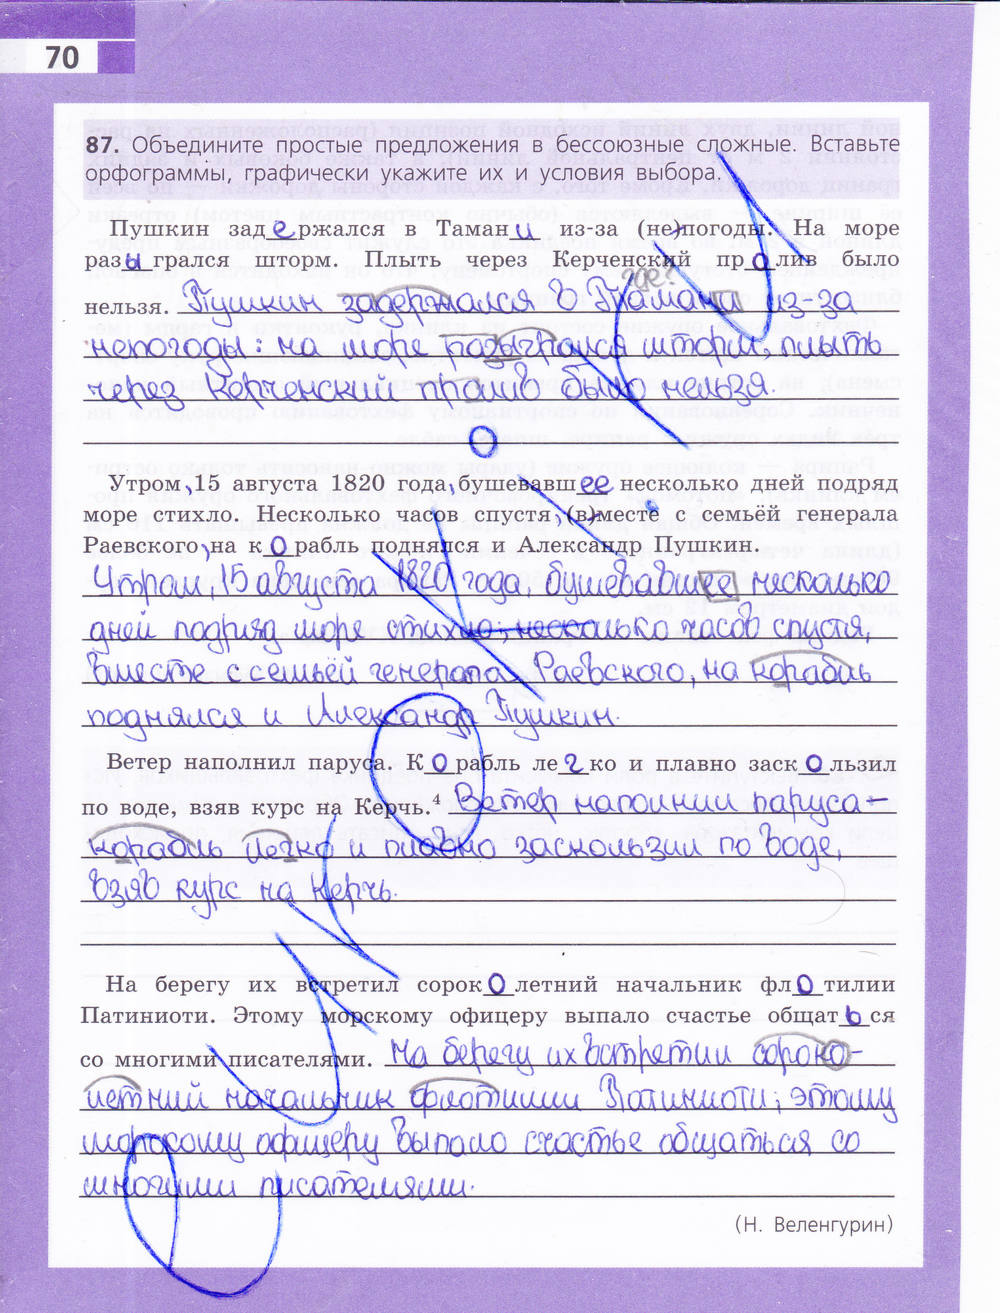 70
87. Объедините простые предложения в бессоюзные сложные. Вставьте
орфограммы, графически укажите их и условия выбора.
Пушкин задержался в Тамани из-за (не)погоды. На море
разыгрался шторм. Плыть через Керченский пролив было
где?
нельзя. Пушкин задержался в Тамани из-за
непогоды: на море разыгрался шторм, плыть
через Керченский пролив было нельзя.
Утром, 15 августа 1820 года, бушевавшее несколько дней подряд
море стихло. Несколько часов спустя, (в)месте с семьёй генерала
Раевского, на корабль поднялся и Александр Пушкин.
Утром, 15 августа 1820 года, бушевавшее несколько
дней подряд море стихло; несколько часов спустя,
вместе с семьёй генерала Раевского, на корабль
поднялся и Александр Пушкин.
Ветер наполнил паруса. Корабль легко и плавно заскользил
по воде, взяв курс на Керчь.4 Ветер наполнил паруса –
корабль легко и плавно заскользил по воде,
взяв курс на Керчь.
На берегу их встретил сороколетний начальник флотилии
Патиниоти. Этому морскому офицеру выпало счастье общаться
со многими писателями. На берегу их встретил сороко-
летний начальник флотилии Патиниоти; этому
морскому офицеру выпало счастье общаться со
многими писателями.
(Н. Веленгурин)